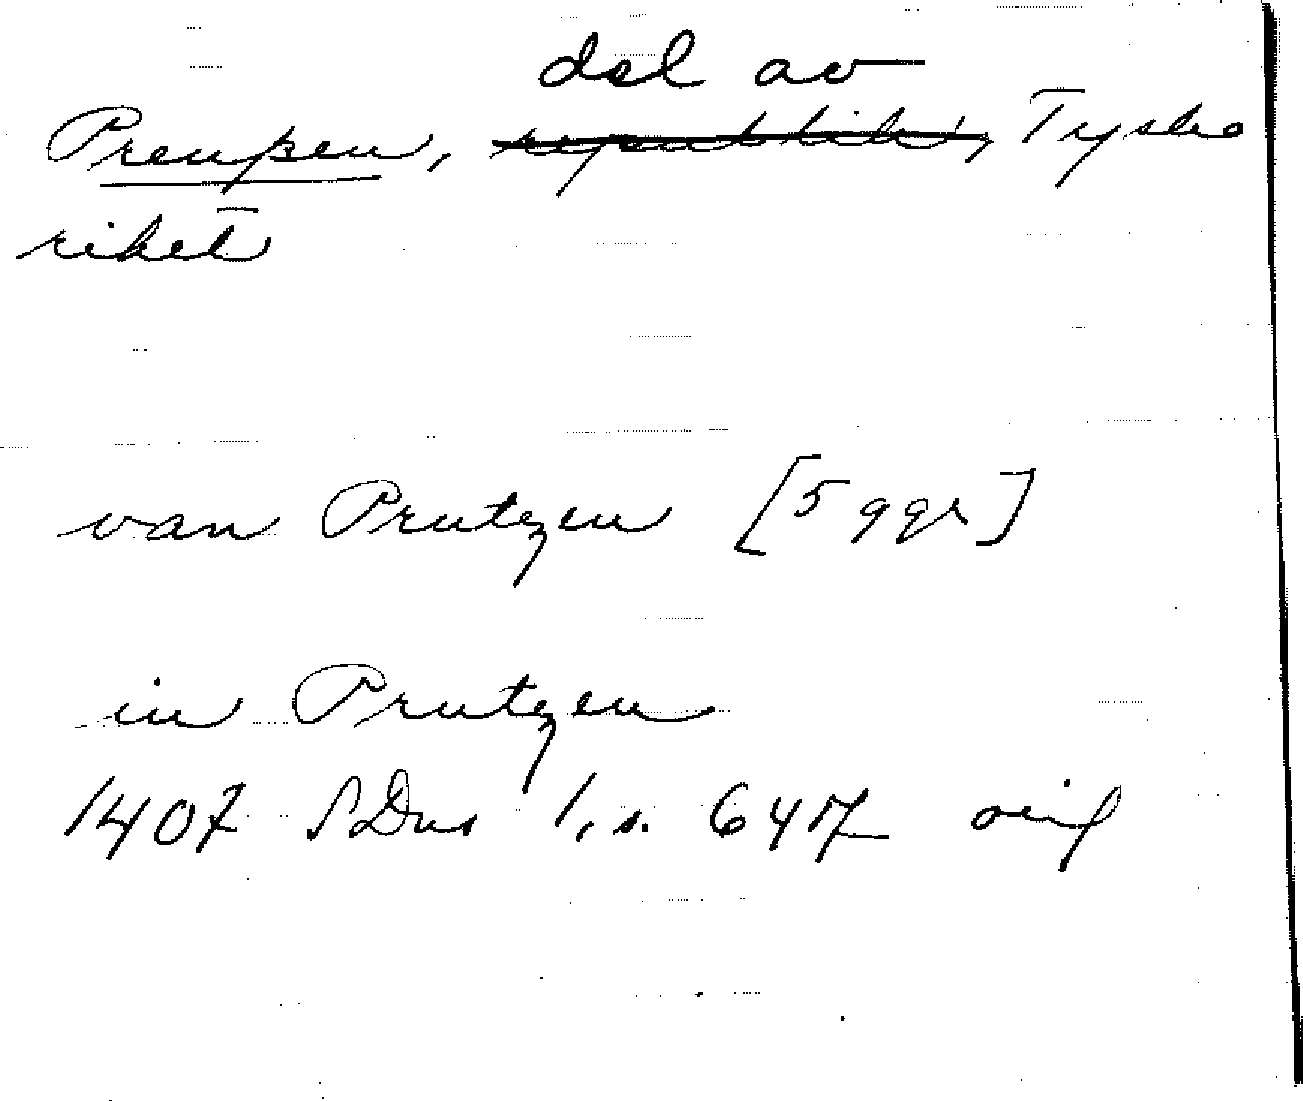 del av
Preußen, republik, Tyska
riket
van Prutzen [5 ggr]
in Prutzen
1407 SDns 1, s. 647 orig